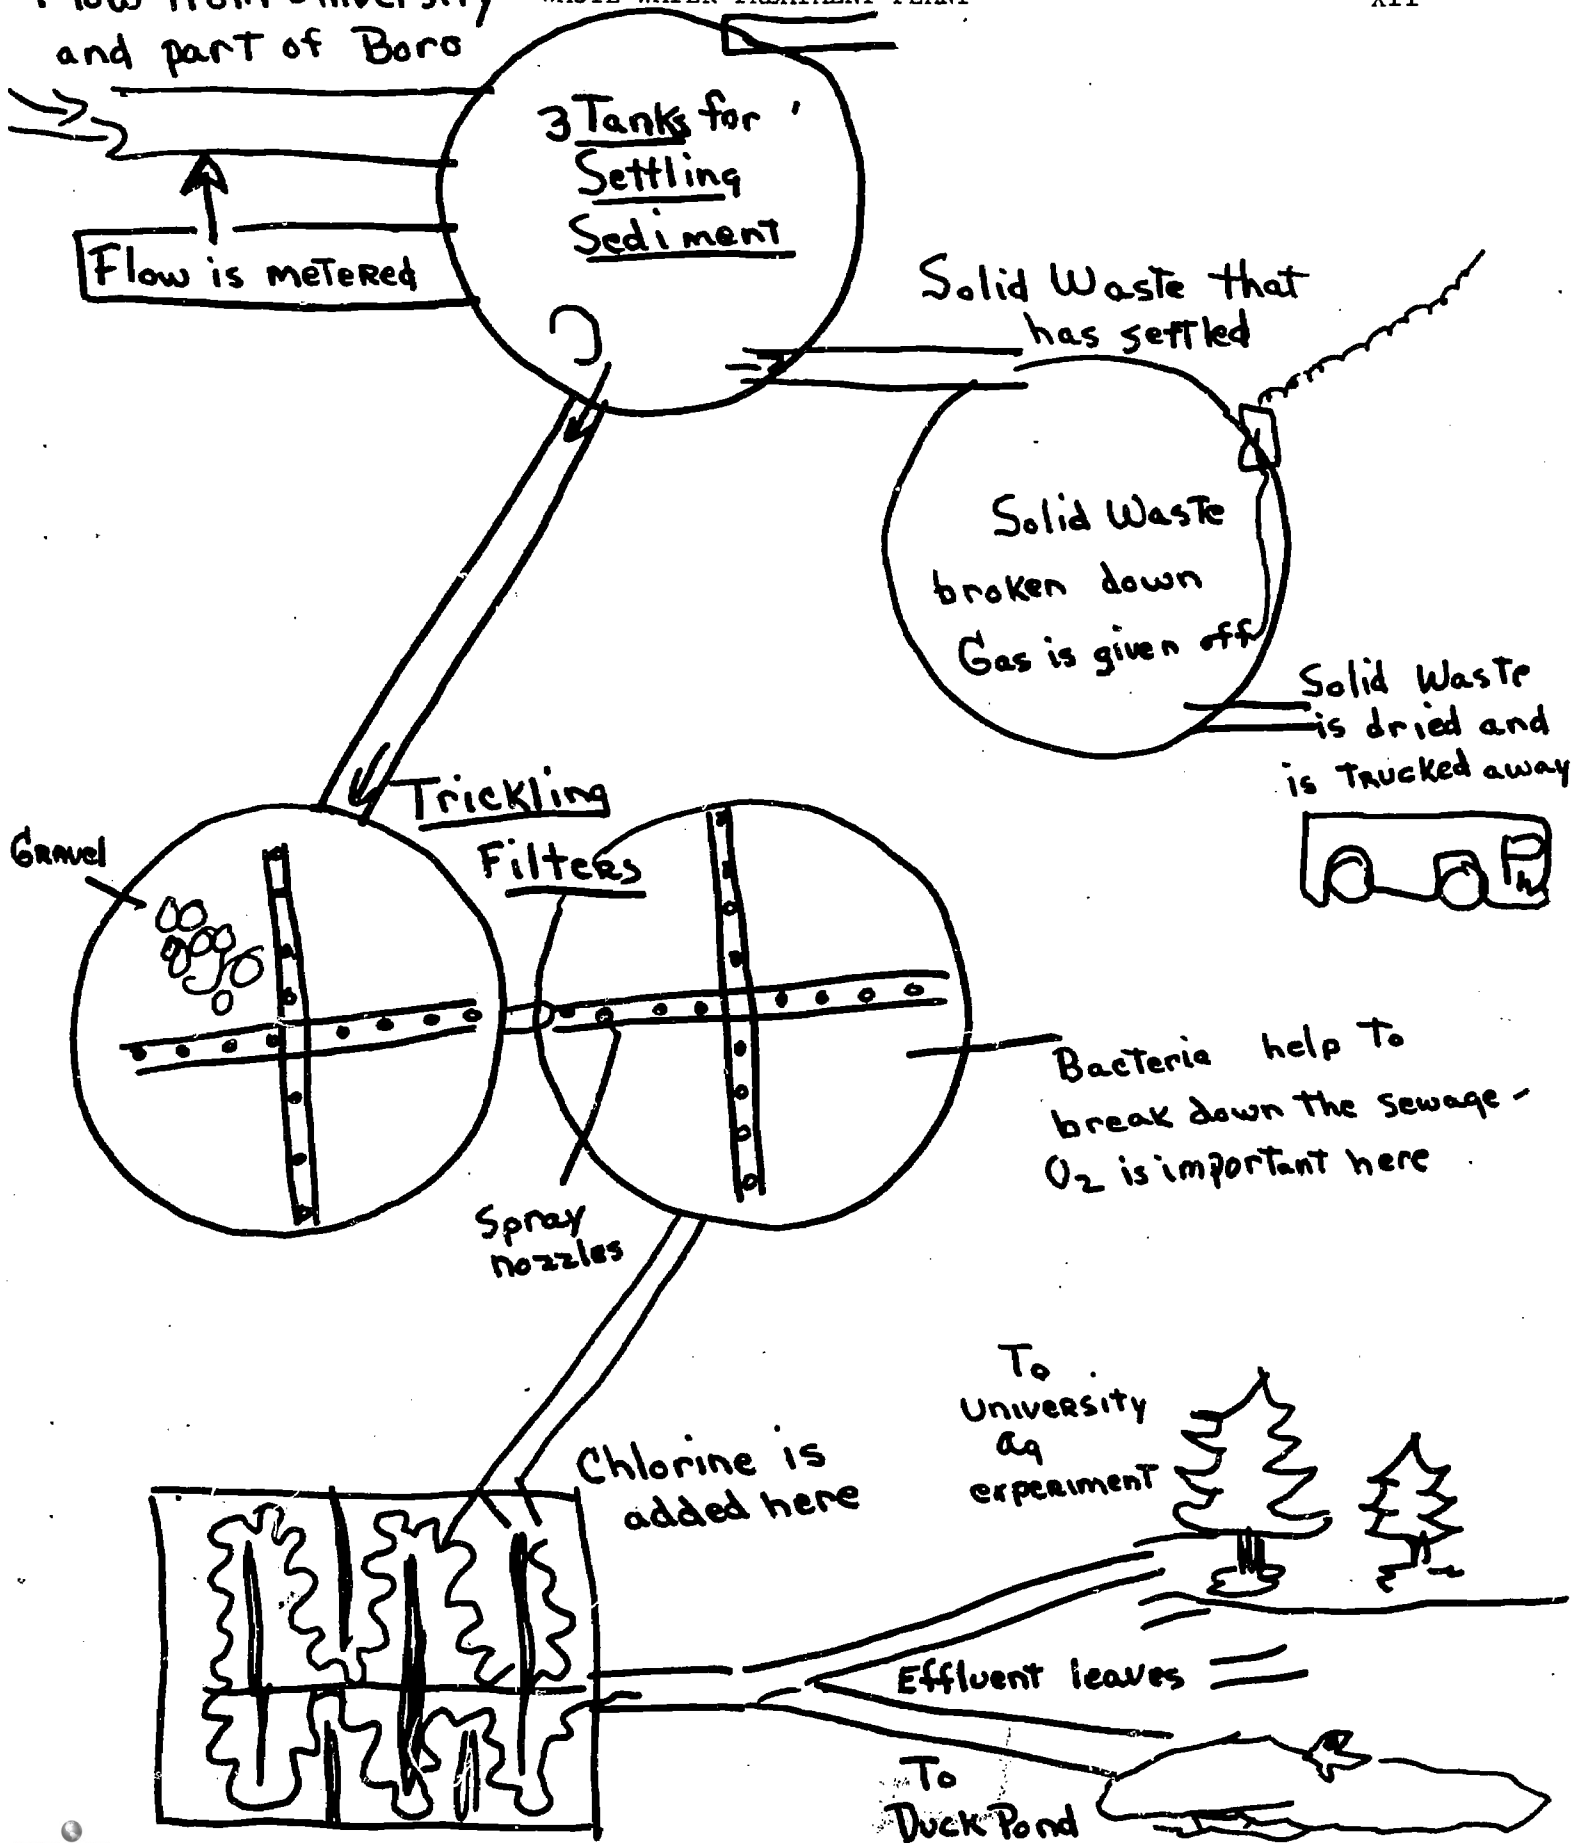 Flow from University
WASTE WATER TREATMENT PLANT
XII
and part of Boro
3 Tanks for
Settling
Sediment
Flow is metered
Solid Waste that
has settled
Solid Waste
broken down
Gas is given off
Solid Waste
is dried and
is trucked away
Trickling
Filters
Gravel
Bacteria help to
break down the sewage -
O2 is important here
Spray
nozzles
To
University
ag
experiment
Chlorine is
added here
Effluent leaves
To
Duck Pond